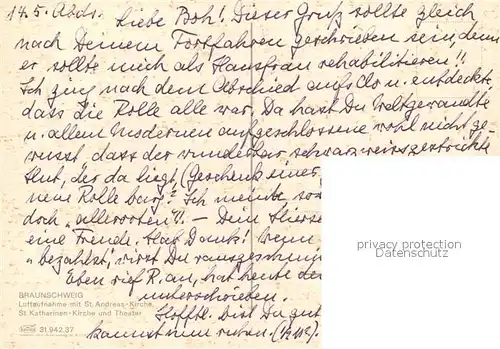 14.5. Abds. Liebe Pooh! Dieser Gruß sollte gleich
nach Deinem Fortfahren geschrieben sein, denn
er sollte mich als Hausfrau rehabilitieren!!
Ich ging nach dem Abschied aufs Clo u. entdeckte,
dass die Rolle alle war. Da hast Du Weltgewandte
u. allem Modernen aufgeschlossene wohl nicht ge-
wusst, dass der wunderbar schwarzweissgestrickte
Hut, der da liegt, (Geschenk einer
neue Rolle barg? Ich meinte,
doch „allerorten"!! – Dein
eine Freude. Hab Dank! Wenn
„bezahlst, wirst Du
Eben rief R. an, hat heute
unterschrieben.
Hofftl. bist Du gut
kannst nun ruhen.
privacy protection
Datenschutz
BRAUNSCHWEIG
Luftaufnahme mit St. Andreas-Kirche,
St. Katharinen-Kirche und Theater
31.942.37